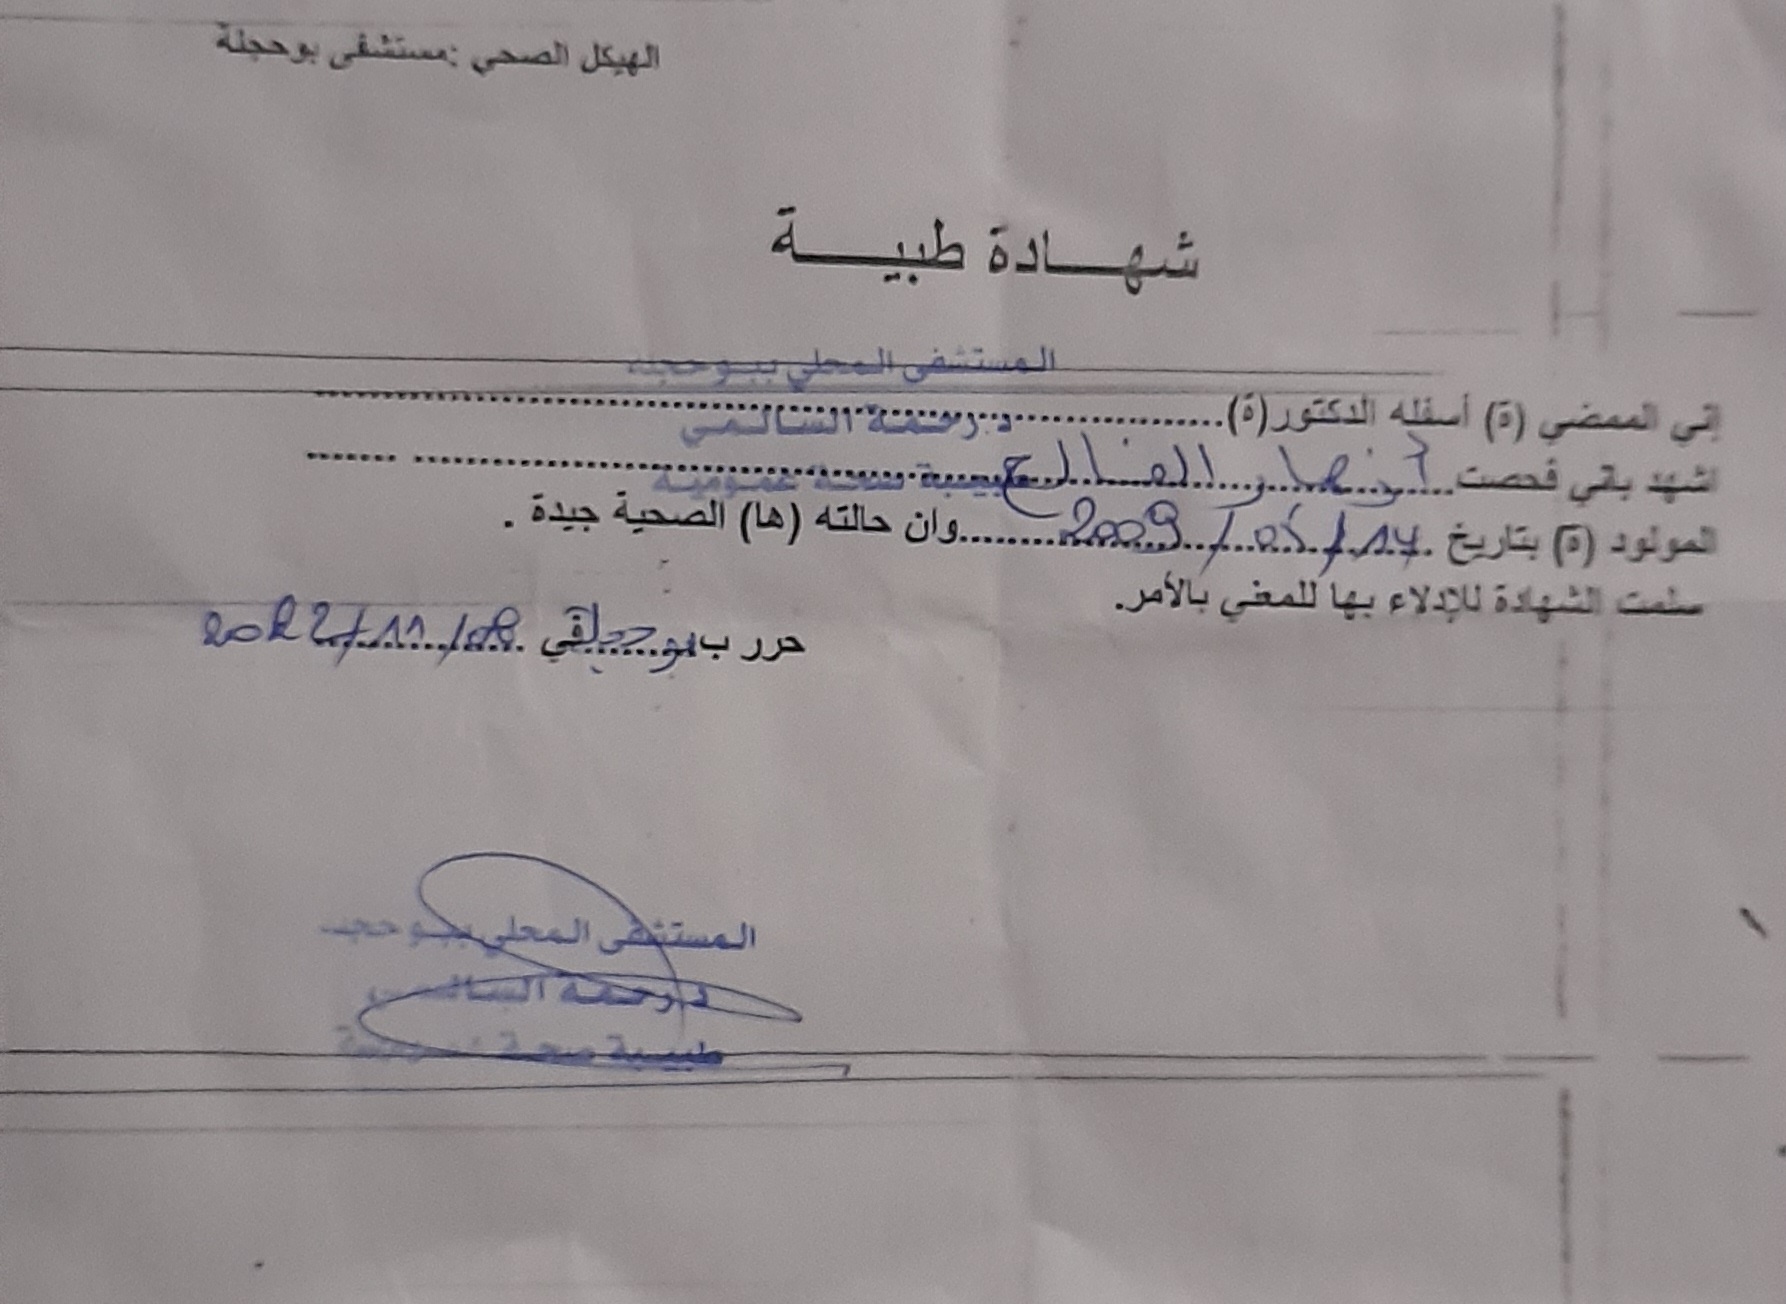 الهيكل الصحي :مستشفى بوحجلة
شهـــادة طبيـــة
المستشفى المحلي ببوحجلة
إني الممضي (ة) أسفله الدكتور(ة)....................د.رحمة السالمي
اشهد باني فحصت.......... الفالح طبيبة صحة عمومية
المولود (ة) بتاريخ 14/05/2009 وان حالته (ها) الصحية جيدة .
سلمت الشهادة للإدلاء بها للمعني بالأمر.
حرر ب بوحجلة في 08/11/2022
المستشفى المحلي ببوحجلة
د.رحمة السالمي
طبيبة صحة عمومية